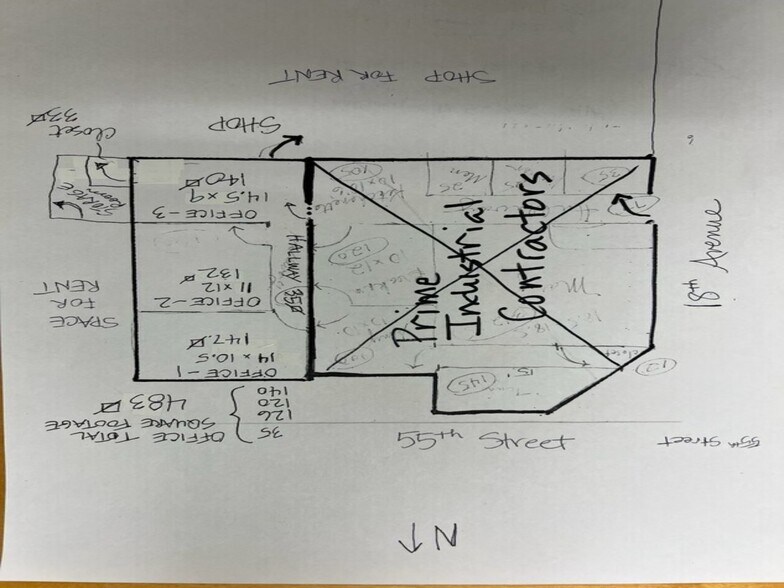 SHOP FOR RENT
SHOP
Closet
33⌀
STORAGE
ROOM
OFFICE-3
14.5 x 9
140⌀
OFFICE-2
11 x 12
132⌀
OFFICE-1
14 x 10.5
147.⌀
HALLWAY 35⌀
SPACE
FOR
RENT
OFFICE TOTAL
SQUARE FOOTAGE
483⌀
35
126
120
140
Prime
Industrial
Contractors
105
Men
25
120
10 x 12
145
15'
12
closet
18th Avenue
55th Street
55th Street
N